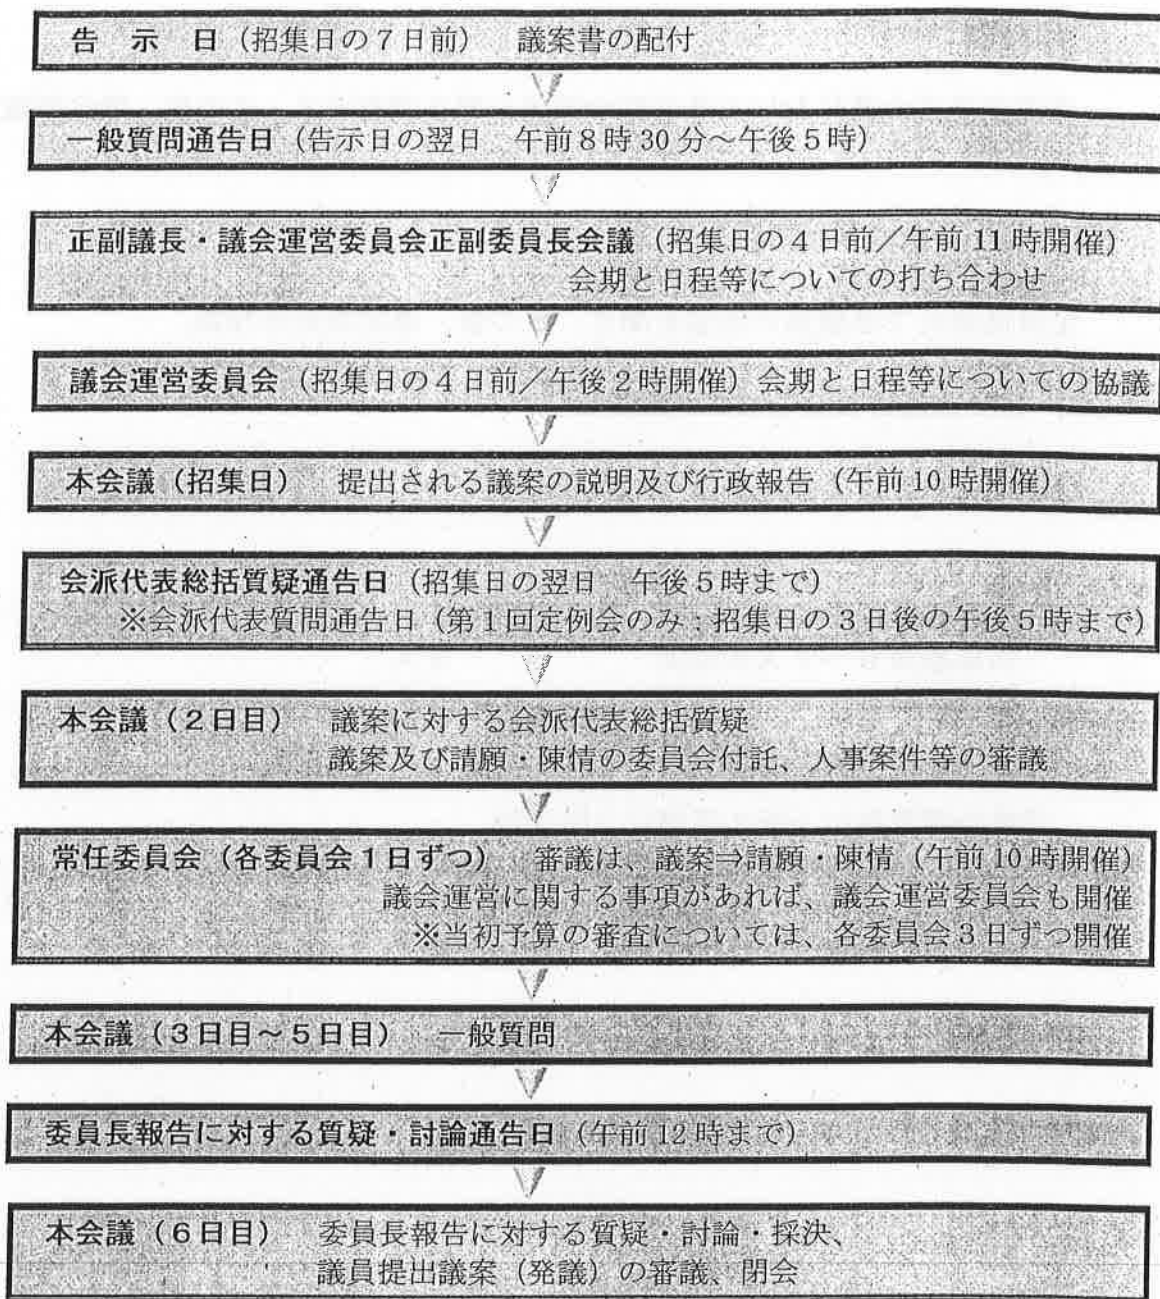 告　示　日（招集日の７日前）　議案書の配付
一般質問通告日（告示日の翌日　午前８時30分～午後５時）
正副議長・議会運営委員会正副委員長会議（招集日の４日前／午前11時開催）
会期と日程等についての打ち合わせ
議会運営委員会（招集日の４日前／午後２時開催）会期と日程等についての協議
本会議（招集日）　提出される議案の説明及び行政報告（午前10時開催）
会派代表総括質疑通告日（招集日の翌日　午後５時まで）
※会派代表質問通告日（第１回定例会のみ：招集日の３日後の午後５時まで）
本会議（２日目）　議案に対する会派代表総括質疑
議案及び請願・陳情の委員会付託、人事案件等の審議
常任委員会（各委員会１日ずつ）　審議は、議案⇒請願・陳情（午前10時開催）
議会運営に関する事項があれば、議会運営委員会も開催
※当初予算の審査については、各委員会３日ずつ開催
本会議（３日目～５日目）　一般質問
委員長報告に対する質疑・討論通告日（午前12時まで）
本会議（６日目）　委員長報告に対する質疑・討論・採決、
議員提出議案（発議）の審議、閉会